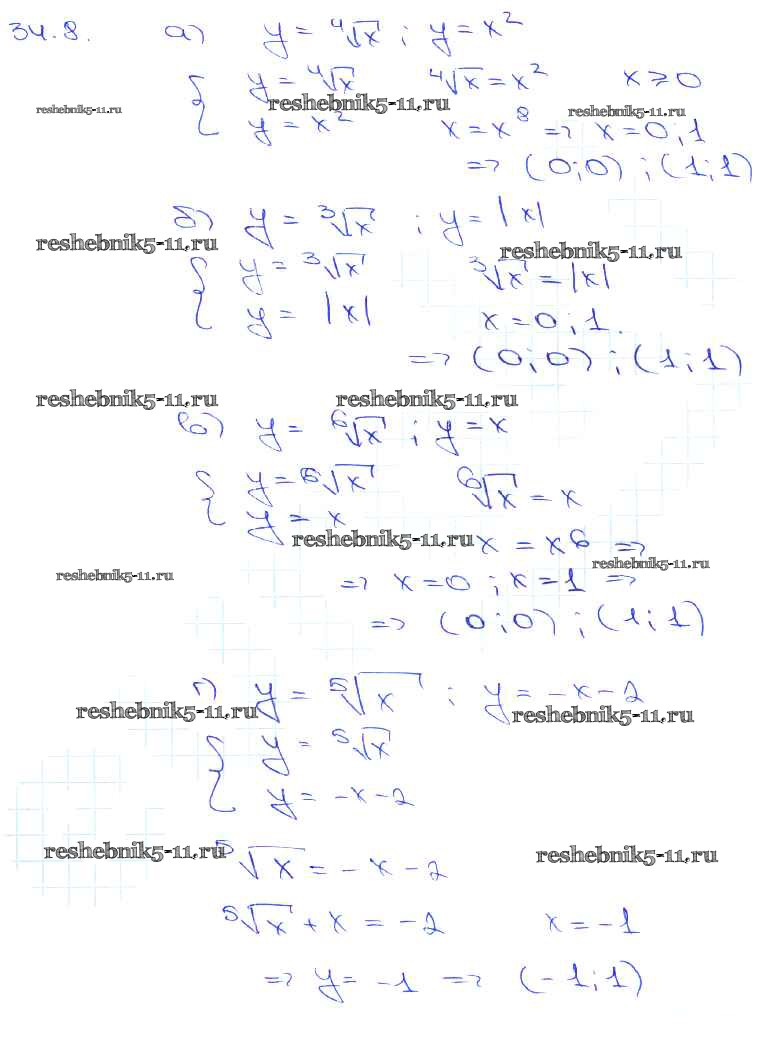 34.8. а) y = ⁴√x ; y = x²
{ y = ⁴√x ⁴√x = x² x ⩾ 0
reshebnik5-11.ru reshebnik5-11.ru reshebnik5-11.ru
y = x² x = x⁸ => x = 0 ; 1
=> (0;0) ; (1;1)
б) y = ³√x ; y = |x|
reshebnik5-11.ru reshebnik5-11.ru
{ y = ³√x ³√x = |x|
y = |x| x = 0 ; 1.
=> (0;0) ; (1;1)
reshebnik5-11.ru reshebnik5-11.ru
в) y = ⁶√x ; y = x
{ y = ⁶√x ⁶√x = x
y = x
reshebnik5-11.ru x = x⁶ =>
reshebnik5-11.ru reshebnik5-11.ru
=> x = 0 ; x = 1 =>
=> (0;0) ; (1;1)
г) y = ⁵√x ; y = -x-2
reshebnik5-11.ru reshebnik5-11.ru
{ y = ⁵√x
y = -x-2
reshebnik5-11.ru reshebnik5-11.ru
⁵√x = -x-2
⁵√x + x = -2 x = -1
=> y = -1 => (-1;1)